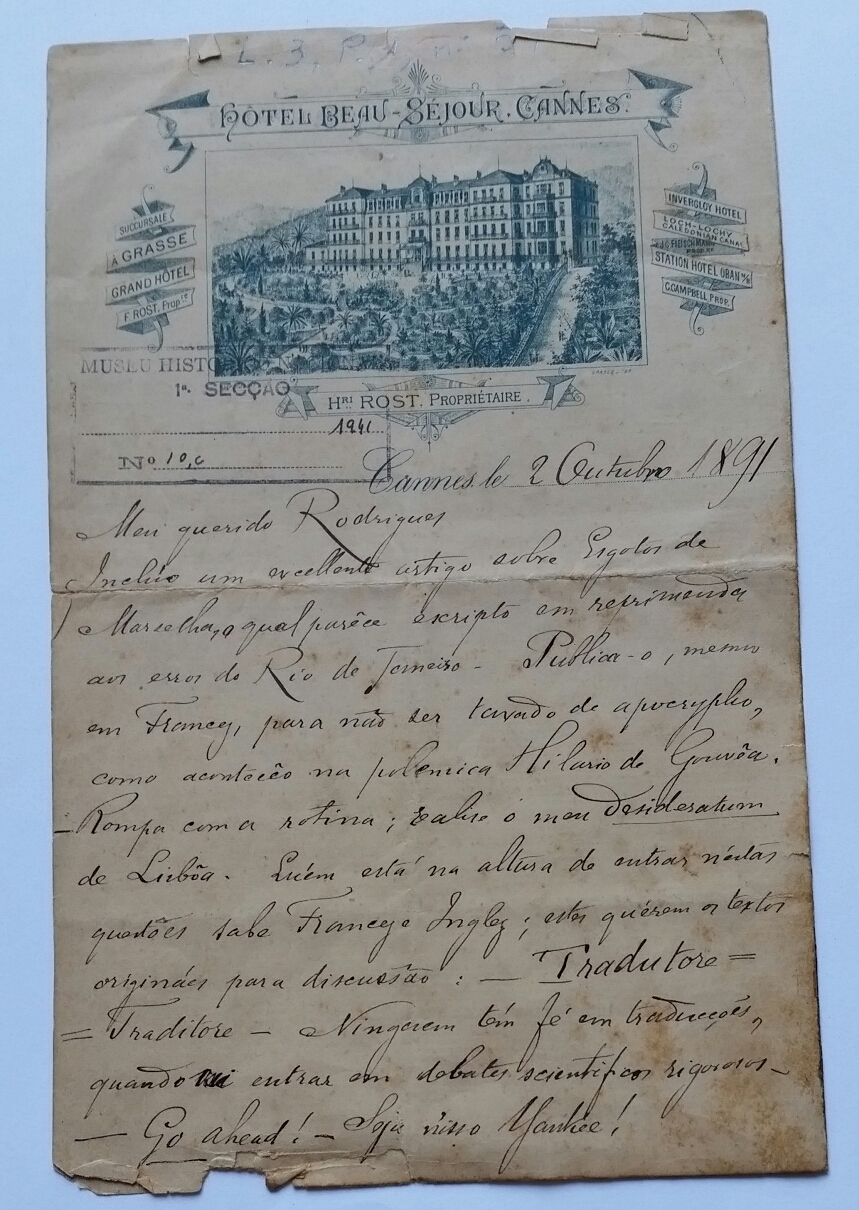 L. 3, P. 
HÔTEL BEAU-SÉJOUR. CANNES.
SUCCURSALE
À GRASSE
GRAND HÔTEL
F. ROST, Propre
INVERGLOY HOTEL
LOCH-LOCHY
CALEDONIAN CANAL
STATION HOTEL OBAN N/B
C. CAMPBELL PROP.
MUSEU HISTO
1ª. SECÇÃO
1941
Nº 10,c
HRI ROST. PROPRIÉTAIRE.
Cannes, le 2 Outubro 1891
Meu querido Rodrigues
Inclúo um excellente artigo sobre Esgotos de
Marselha, o qual parêce escripto em reprimenda
aos erros do Rio de Janeiro - Publica-o, mesmo
em Francez, para não ser taxado de apocrypho,
como acontecêo na polemica Hilario de Gouvêa.
- Rompa com a rotina; realise o meu desideratum
de Lisbôa. Quém está na altura de entrar néstas
questões sabe Francez e Inglez; estes quérem os textos
origináes para discussão: — Tradutore =
= Traditore - Ninguem têm fé em traducções,
quando vai entrar em debates scientificos rigorosos -
— Go ahead! - Seja nisso Yankée!